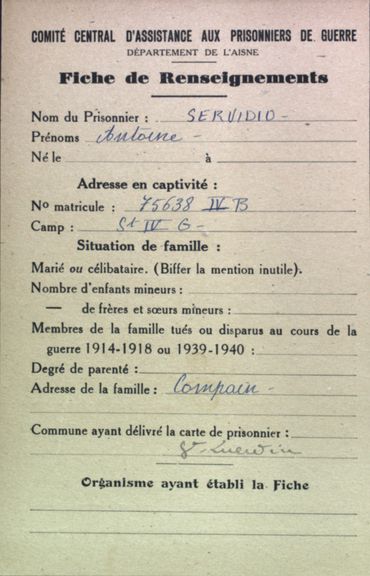 COMITÉ CENTRAL D'ASSISTANCE AUX PRISONNIERS DE GUERRE
DÉPARTEMENT DE L'AISNE
Fiche de Renseignements
Nom du Prisonnier : SERVIDIO -
Prénoms Antoine -
Né le à
Adresse en captivité :
No matricule : 75638 IV B
Camp : St IV G -
Situation de famille :
Marié ou célibataire. (Biffer la mention inutile).
Nombre d'enfants mineurs :
— de frères et sœurs mineurs :
Membres de la famille tués ou disparus au cours de la
guerre 1914-1918 ou 1939-1940 :
Degré de parenté :
Adresse de la famille : Compain -
Commune ayant délivré la carte de prisonnier :
Organisme ayant établi la Fiche